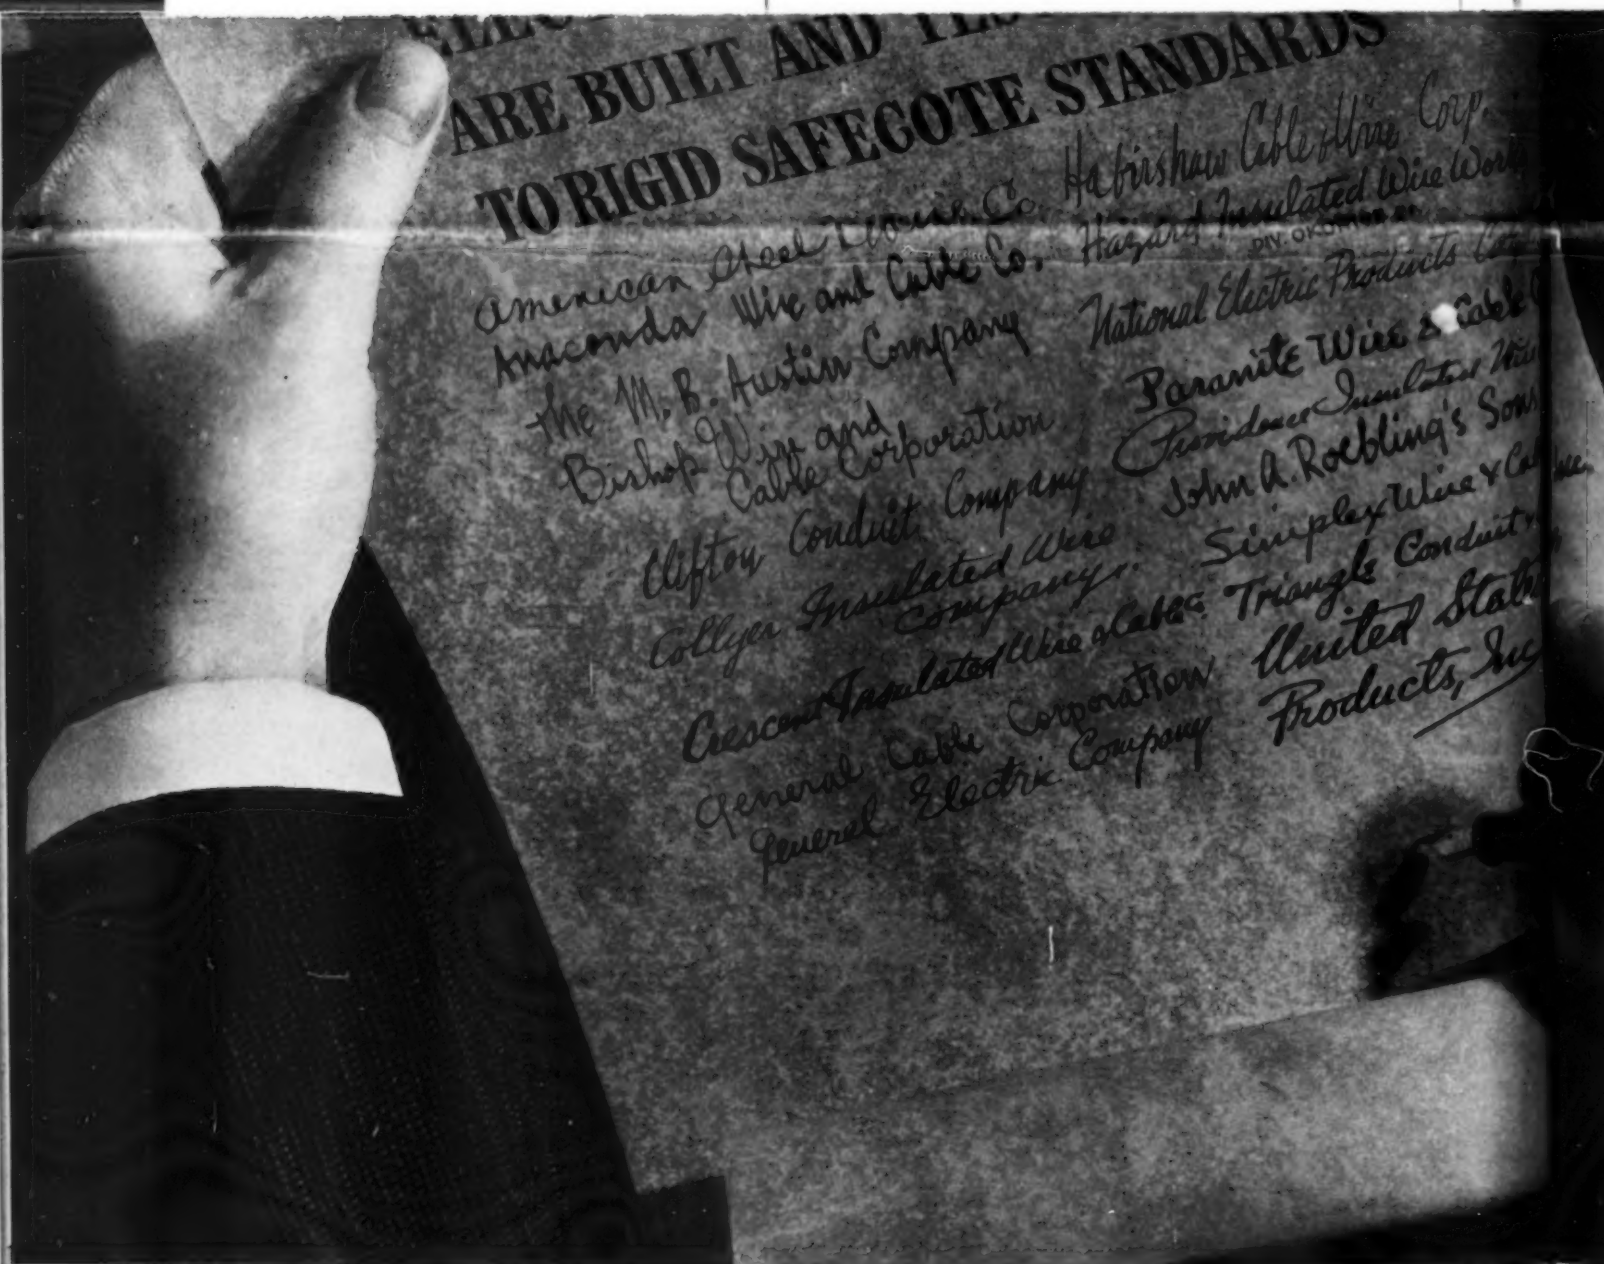 ARE BUILT AND
TO RIGID SAFECOTE STANDARDS
American Steel & Wire Co
Anaconda Wire and Cable Co.
The M. B. Austin Company
Bishop Wire and
Cable Corporation
Clifton Conduit Company
Collyer Insulated Wire
Company.
Crescent Insulated Wire & Cable
General Cable Corporation
General Electric Company
Habirshaw Cable & Wire Corp.
Hazard Insulated Wire Works
DIV. OKONITE
National Electric Products
Paranite Wire & Cable
Providence Insulated Wire
John A. Roebling's Sons
Simplex Wire & Cable
Triangle Conduit
United States
Products, Inc